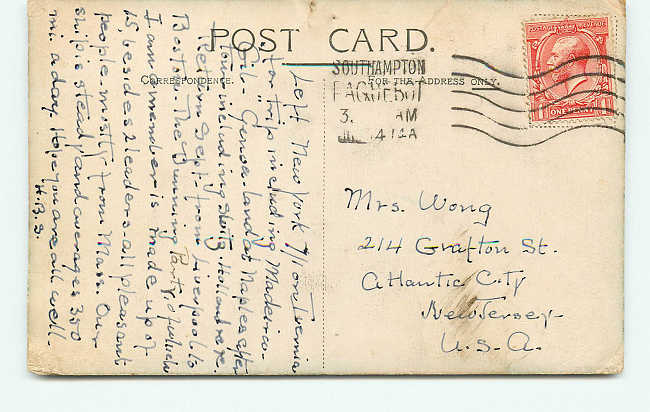 POST CARD.
CORRESPONDENCE.
FOR THE ADDRESS ONLY.
SOUTHAMPTON
AM
POSTAGE REVENUE
ONE PENNY
Left New York Ivernia
for trip including Madeira-
Gib. Genoa. land at Naples after
tour including Switz. Holland etc.
Return Sept- from Liverpool to
Boston. The Dunning Party, of which
I am a member is made up of
15, besides 2 leaders, all pleasant
people, mostly from Mass. Our
ship is steady and averages 350
mi. a day. Hope you are all well-
H.B.S.
Mrs. Wong
214 Grafton St.
Atlantic City
New Jersey-
U.S.A.